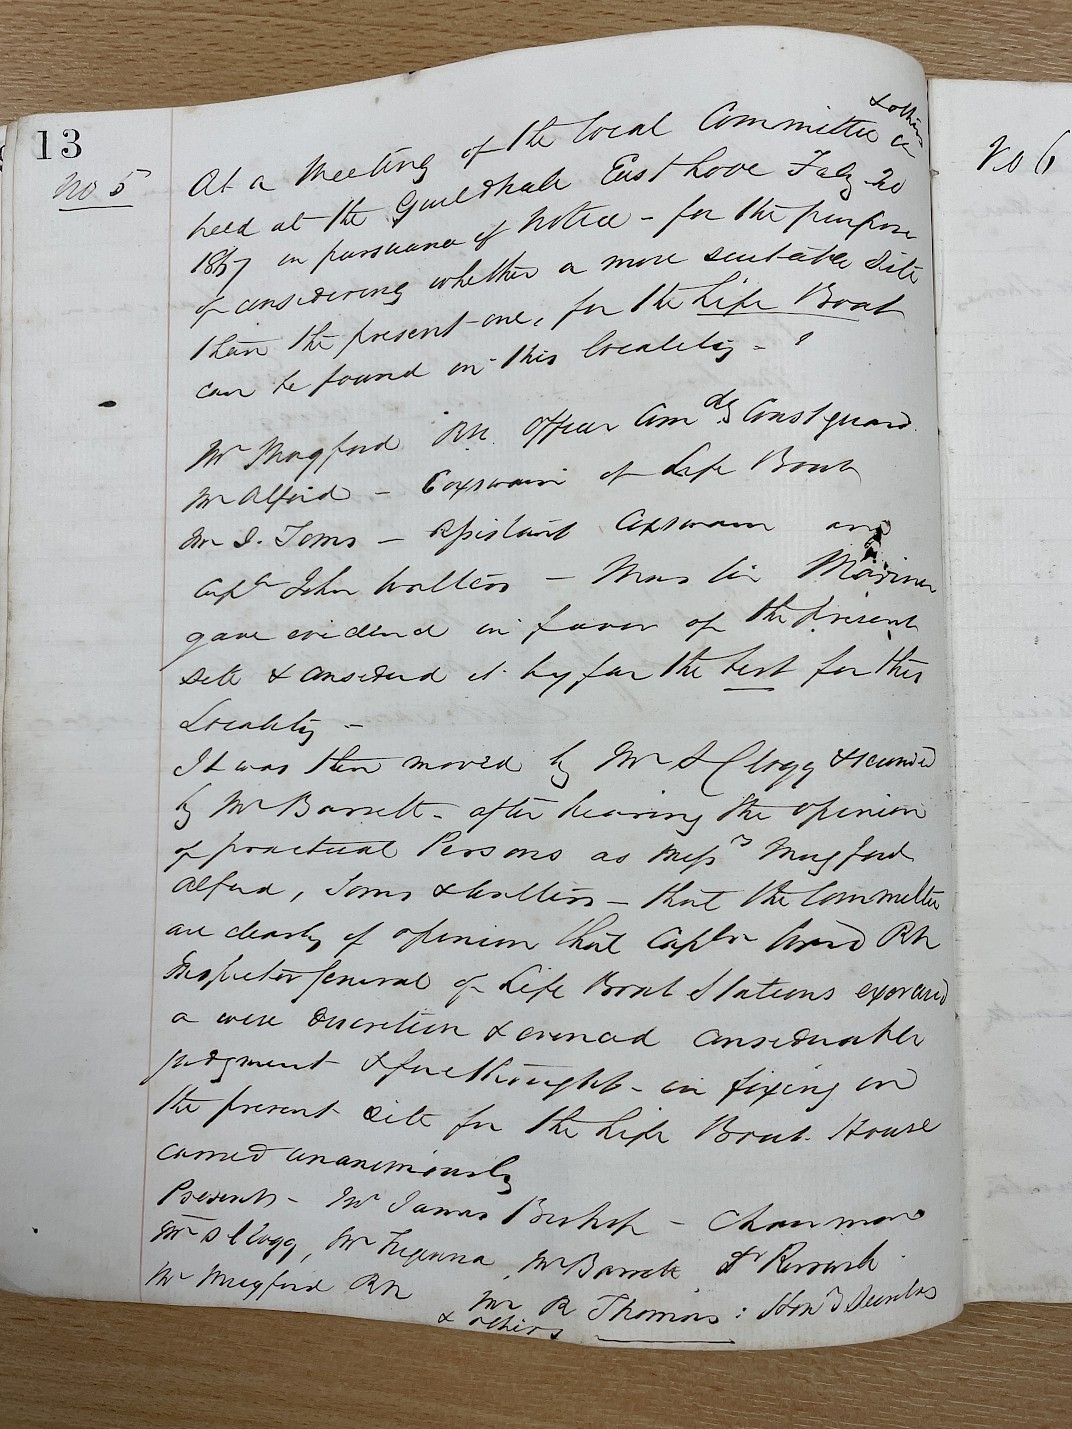 13
No 5
No 6
& others
At a Meeting of the local Committee
held at the Guildhall East Looe Feby 20
1867 in pursuance of Notice - for the purpose
of considering whether a more suitable Site
than the present one, for the Life Boat
can be found in this locality - ?
Mr Mugford RN. Officer Comdg Coastguard.
Mr Alford - Coxswain of Life Boat
Mr J. Toms - Assistant Coxswain and
Captn John Walters - Master Mariner
gave evidence in favor of the present
site & considered it by far the best for this
Locality -
It was then moved by Mr S Clogg & seconded
by Mr Barrett - after hearing the opinion
of practical Persons as Messrs Mugford
Alford, Toms & Walters - that the Committee
are clearly of opinion that Captn Ward RN
Inspector General of Life Boat Stations exercised
a wise discretion & evinced considerable
judgment & forethought - in fixing on
the present site for the Life Boat House
carried unanimously
Present - Mr James Bishop - Chairman
Mr S Clogg, Mr Barrett Dr
Mr Mugford RN Mr R Thomas : Hony
& others